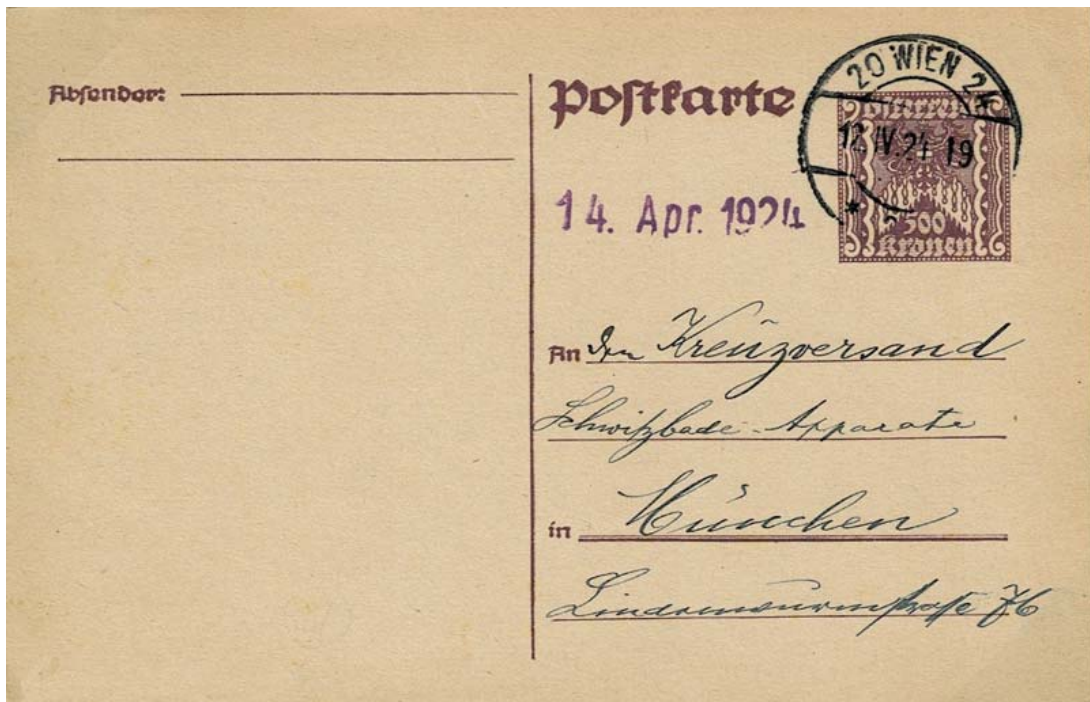 Absender:
Postkarte
20 WIEN 24
12.IV.24 19
*
Österreich
500
Kronen
14. Apr. 1924
An den Kreuzversand
Schwitzbade-Apparate
in München
Lindenwurmstraße 76